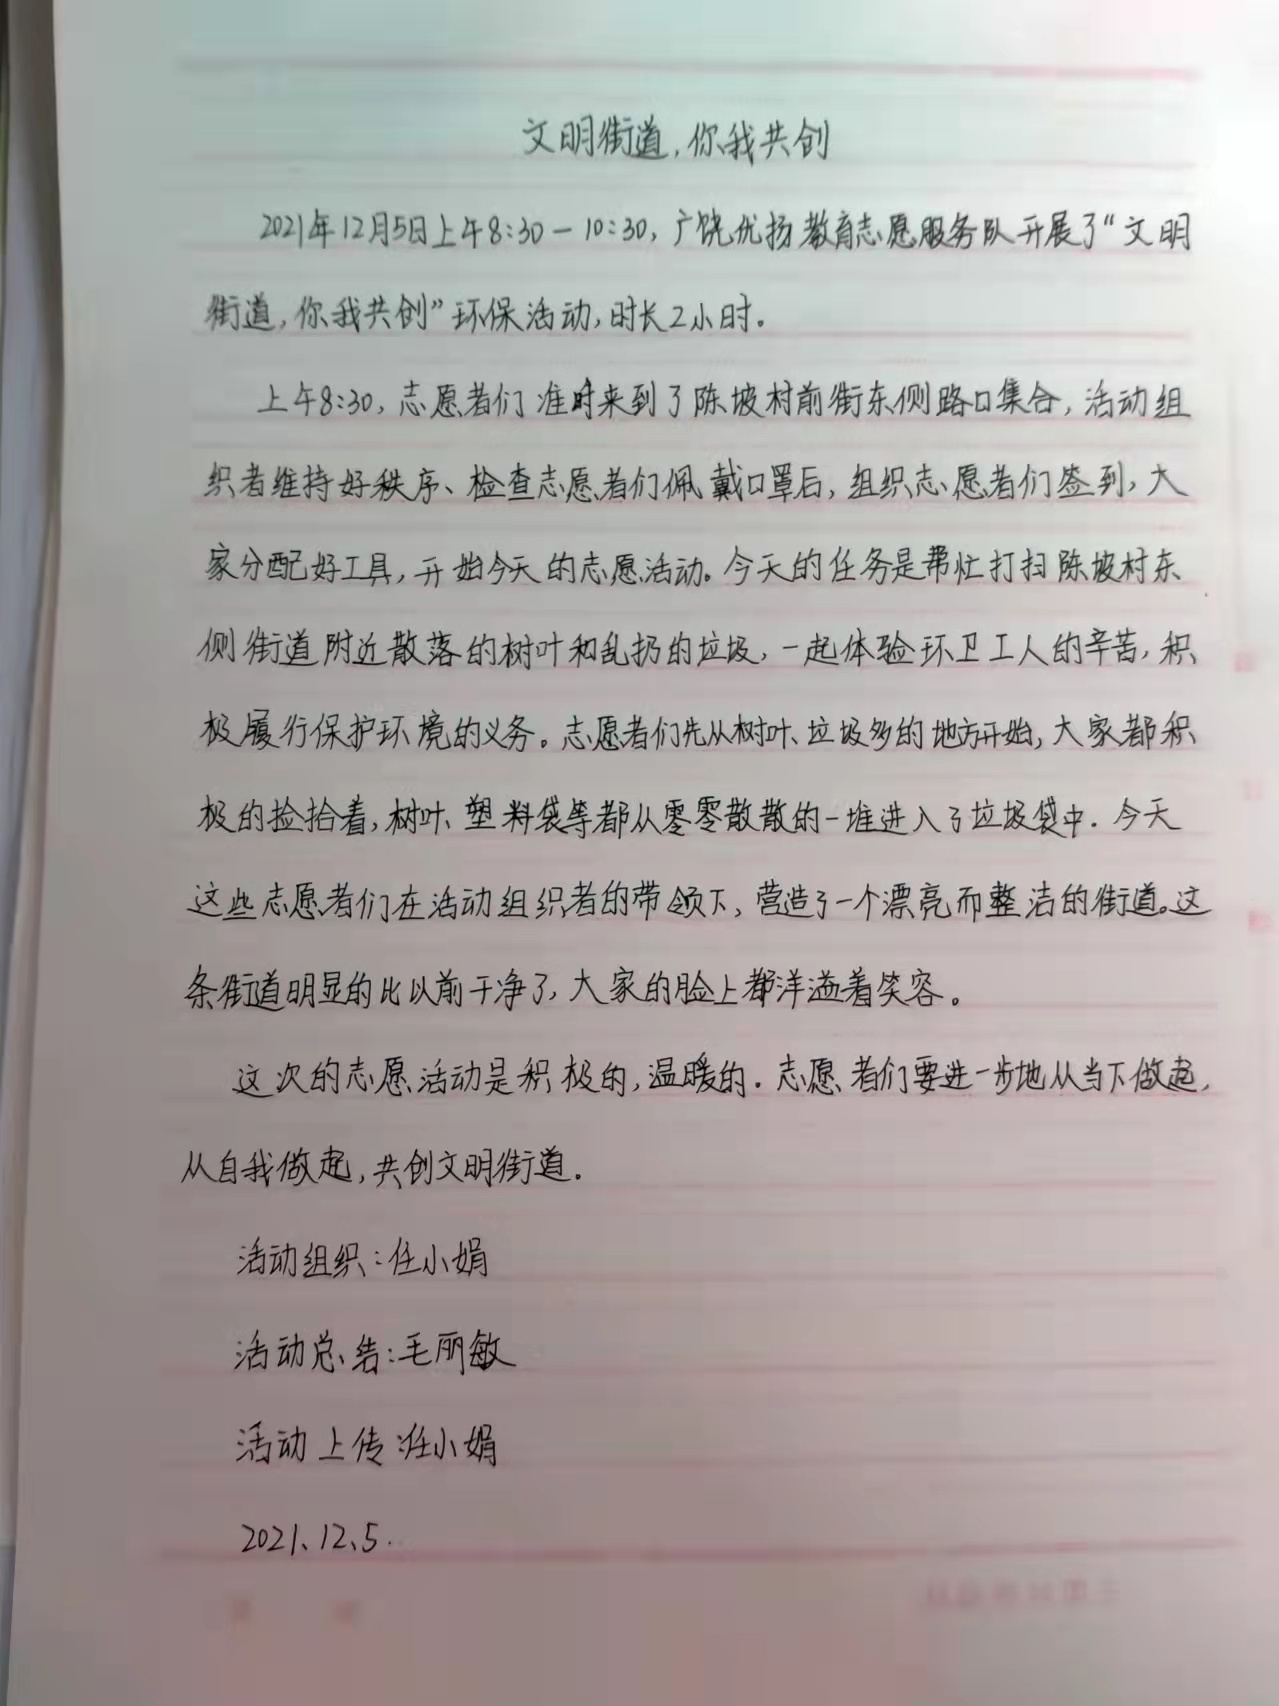 文明街道,你我共创
2021年12月5日上午8:30-10:30,广饶优扬教育志愿服务队开展了“文明
街道,你我共创”环保活动,时长2小时。
上午8:30,志愿者们准时来到了陈坡村前街东侧路口集合,活动组
织者维持好秩序、检查志愿者们佩戴口罩后,组织志愿者们签到,大
家分配好工具,开始今天的志愿活动。今天的任务是帮忙打扫陈坡村东
侧街道附近散落的树叶和乱扔的垃圾,一起体验环卫工人的辛苦,积
极履行保护环境的义务。志愿者们先从树叶、垃圾多的地方开始,大家都积
极的捡拾着,树叶、塑料袋等都从零零散散的一堆进入了垃圾袋中.今天
这些志愿者们在活动组织者的带领下,营造了一个漂亮而整洁的街道。这
条街道明显的比以前干净了,大家的脸上都洋溢着笑容。
这次的志愿活动是积极的,温暖的.志愿者们要进一步地从当下做起,
从自我做起,共创文明街道.
活动组织:任小娟
活动总结:毛丽敏
活动上传:任小娟
2021、12、5.